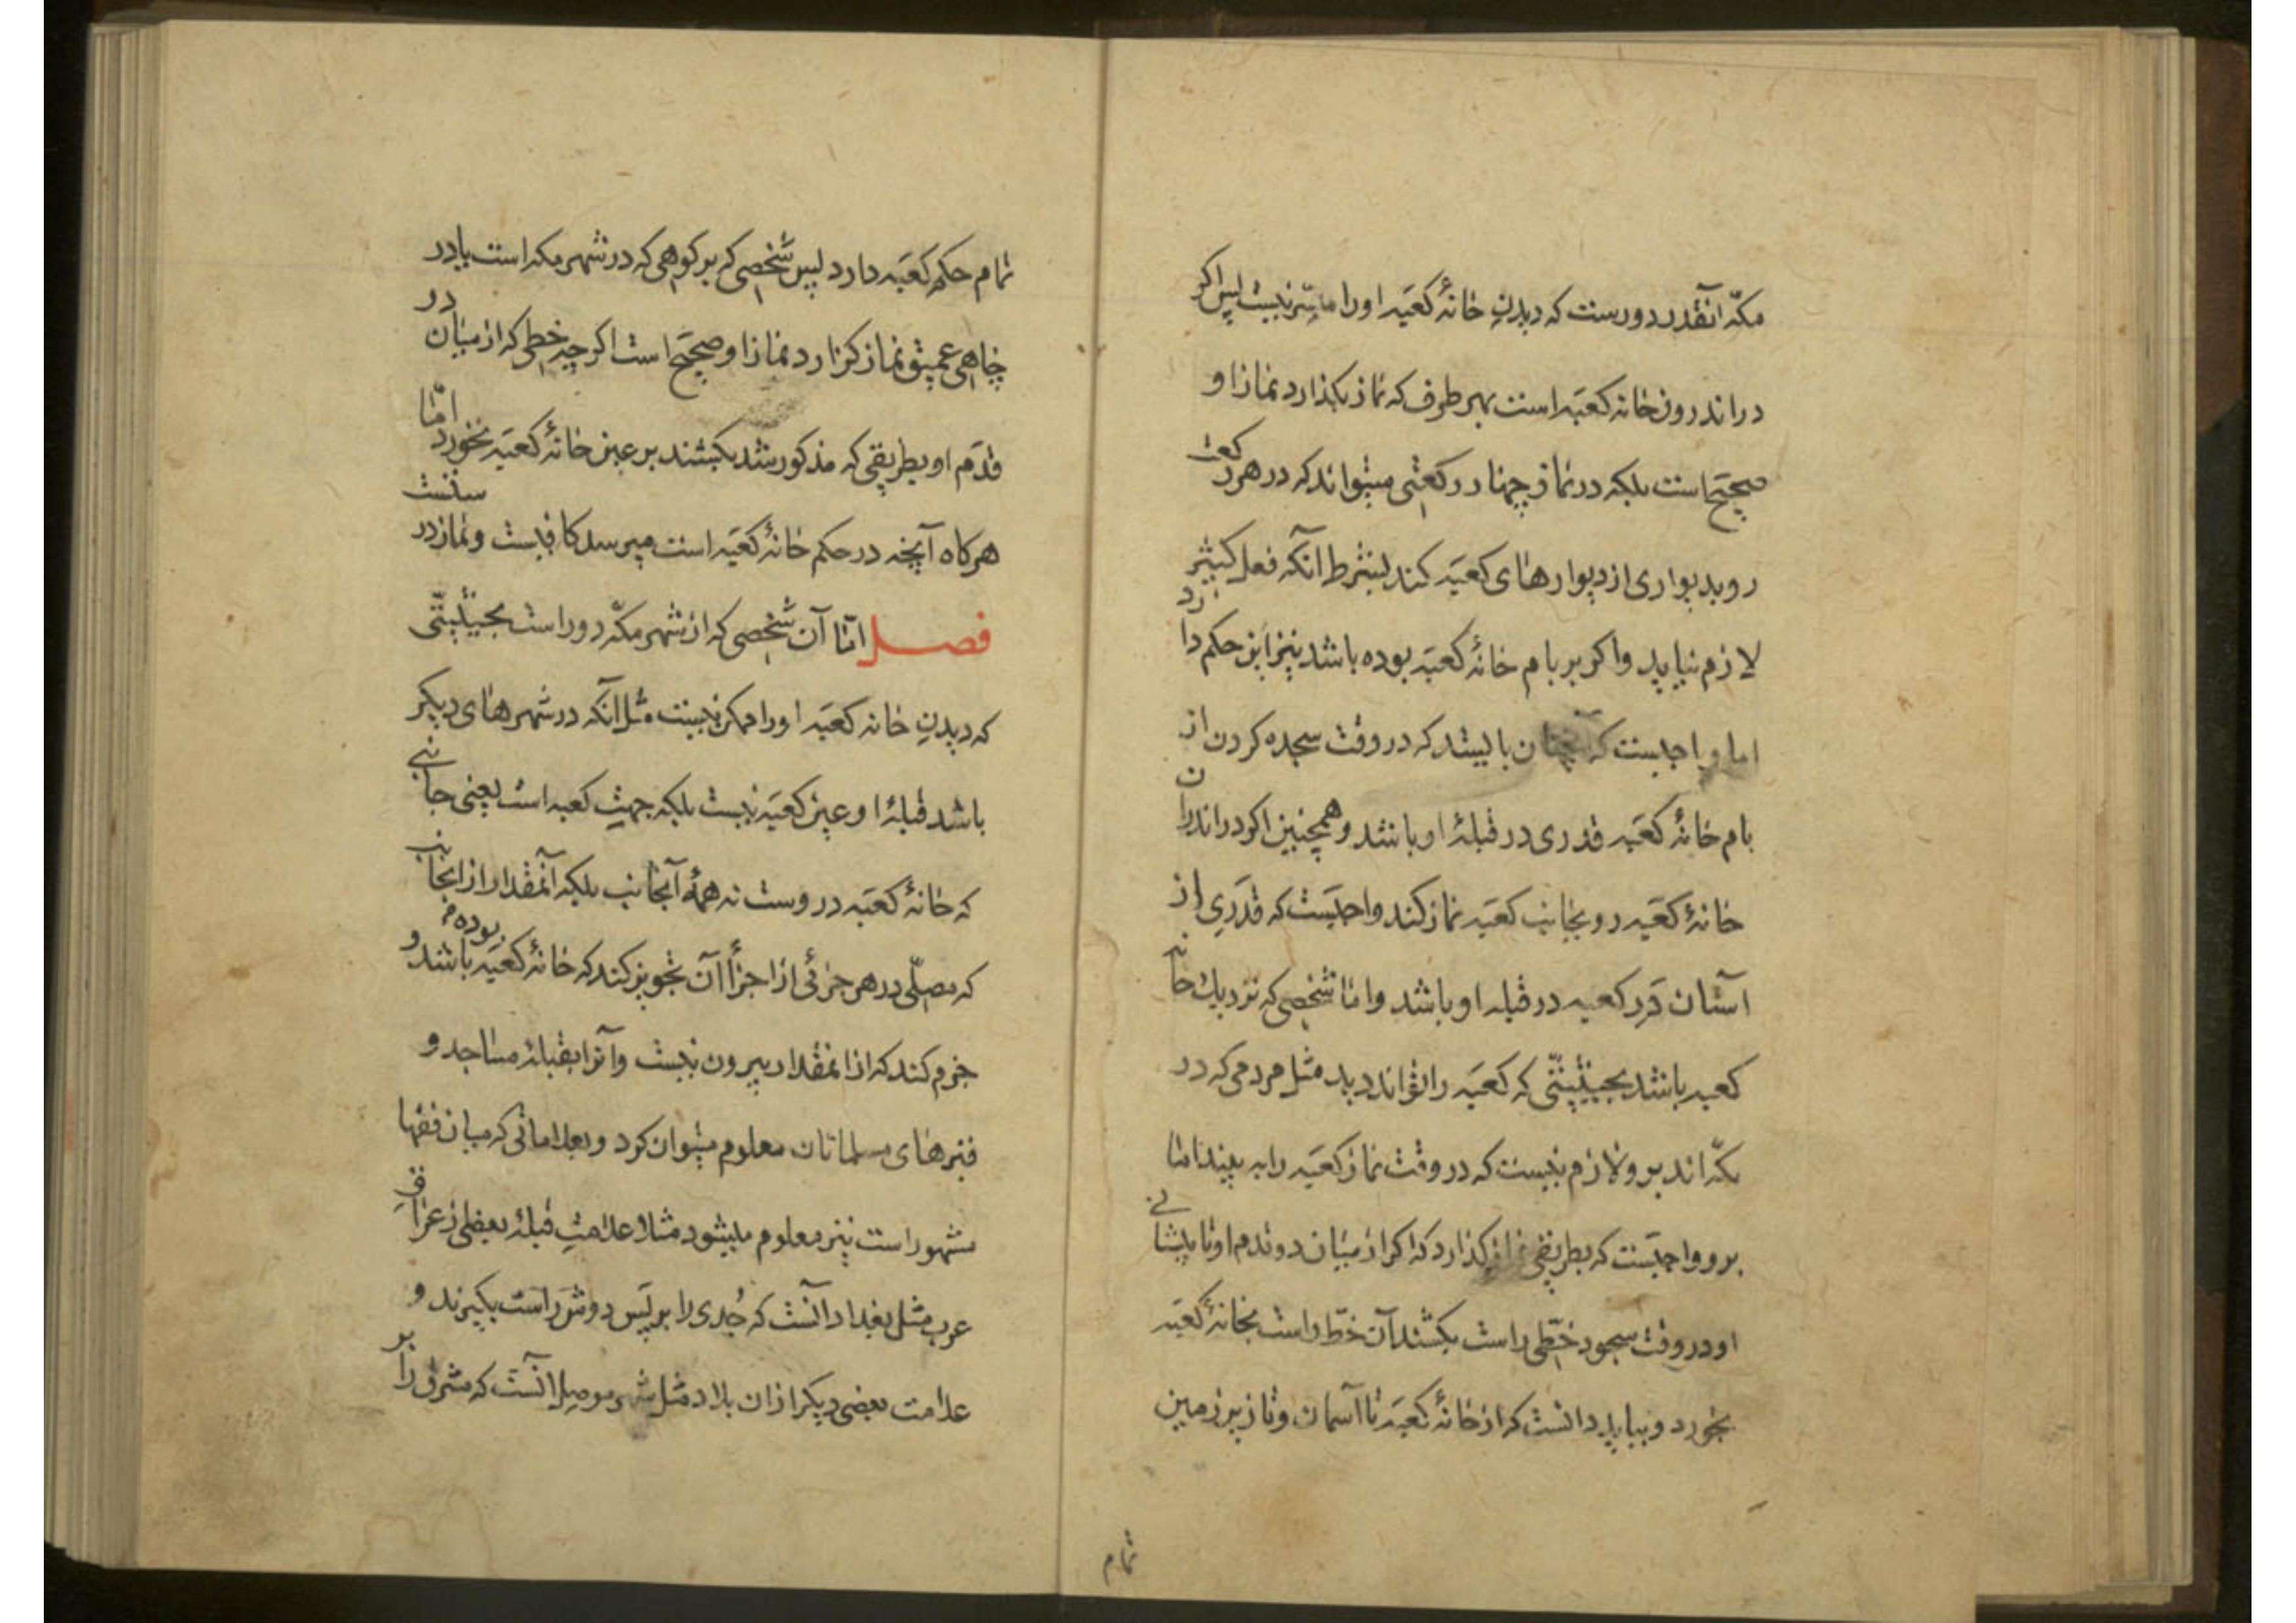 مکّه آنقدر دورست که دیدنِ خانهٔ کعبَه او را میسّر نیست پس اکر
در اندرون خانه کعبَه است بهر طرف که نماز بکذارد نماز او
صحیح است بلکه در نماز چهار رکعتی میتواند که در هر رکعت
رو بدیواری از دیوارهای کعبَه کند بشرط آنکه فعل کثیر
لازم نیاید و اکر بر بام خانهٔ کعبَه بوده باشد نیز این حکم دارد
اما واجبست که چنان بایستد که در وقت سجده کردن از
بام خانهٔ کعبَه قدری در قبلهٔ او باشد و همچنین اکر در اندران
خانهٔ کعبَه رو بجانب کعبَه نماز کند واجبَست که قدَری از
آستان دَرِ کعبه در قبله او باشد و امّا شخصی که نزدیك خانه
کعبه باشد بحیثیّتی که کعبَه را تواند دید مثل مردمی که در
مکّه اند برو لازم نیست که در وقت نماز کعبَه را به بیند امّا
برو واجبَست که بطریقی نماز کذارد که اکر از میان دو قدم او تا پیشانی
او در وقت سجود خطّی راست بکشند آن خطّ راست بخانهٔ کعبَه
بخورد و بباید دانست که از خانهٔ کعبَه تا آسمان و تا زیر زمین
تمام
تمام حکم کعبَه دارد پس شخصی که بر کوهی که در شهر مکه است یا در
چاهی عمیق نماز کزارد نماز او صحیَح است اکرچه خطی که از میان در
قدَم او بطریقی که مذکور شد بکشند بر عین خانهٔ کعبَه نخورد امّا
هرکاه آنچه در حکم خانهٔ کعبَه است میرسد کافیست و نماز درستست
فصل امّا آن شخصی که از شهر مکّه دور است بحیثیّتی
که دیدنِ خانه کعبَه او را ممکن نیست مثل آنکه در شهرهای دیکر
باشد قبلهٔ او عین کعبَه نیست بلکه جهتِ کعبه است یعنی جانبی
که خانهٔ کعبَه دروست نه همهٔ آنجانب بلکه آنمقدار از آنجانب
که مصلّی در هر جزئی از اجزأ آن تجویز کند که خانهٔ کعبَه بوده باشد و
جزم کند که از انمقدار بیرون نیست و آنرا بقبلهٔ مساجد و
قبرهای مسلمانان معلوم میتوان کرد و بعلاماتی که میان فقها
مشهور است نیز معلوم میشود مثلا علامتِ قبلهٔ بعضی از عراقِ
عرب مثل بغداد آنست که جُدی را بر پسِ دوش راست بکیرند و
علامت بعضی دیکر از ان بلاد مثل شهر موصل آنست که مشرق را بر